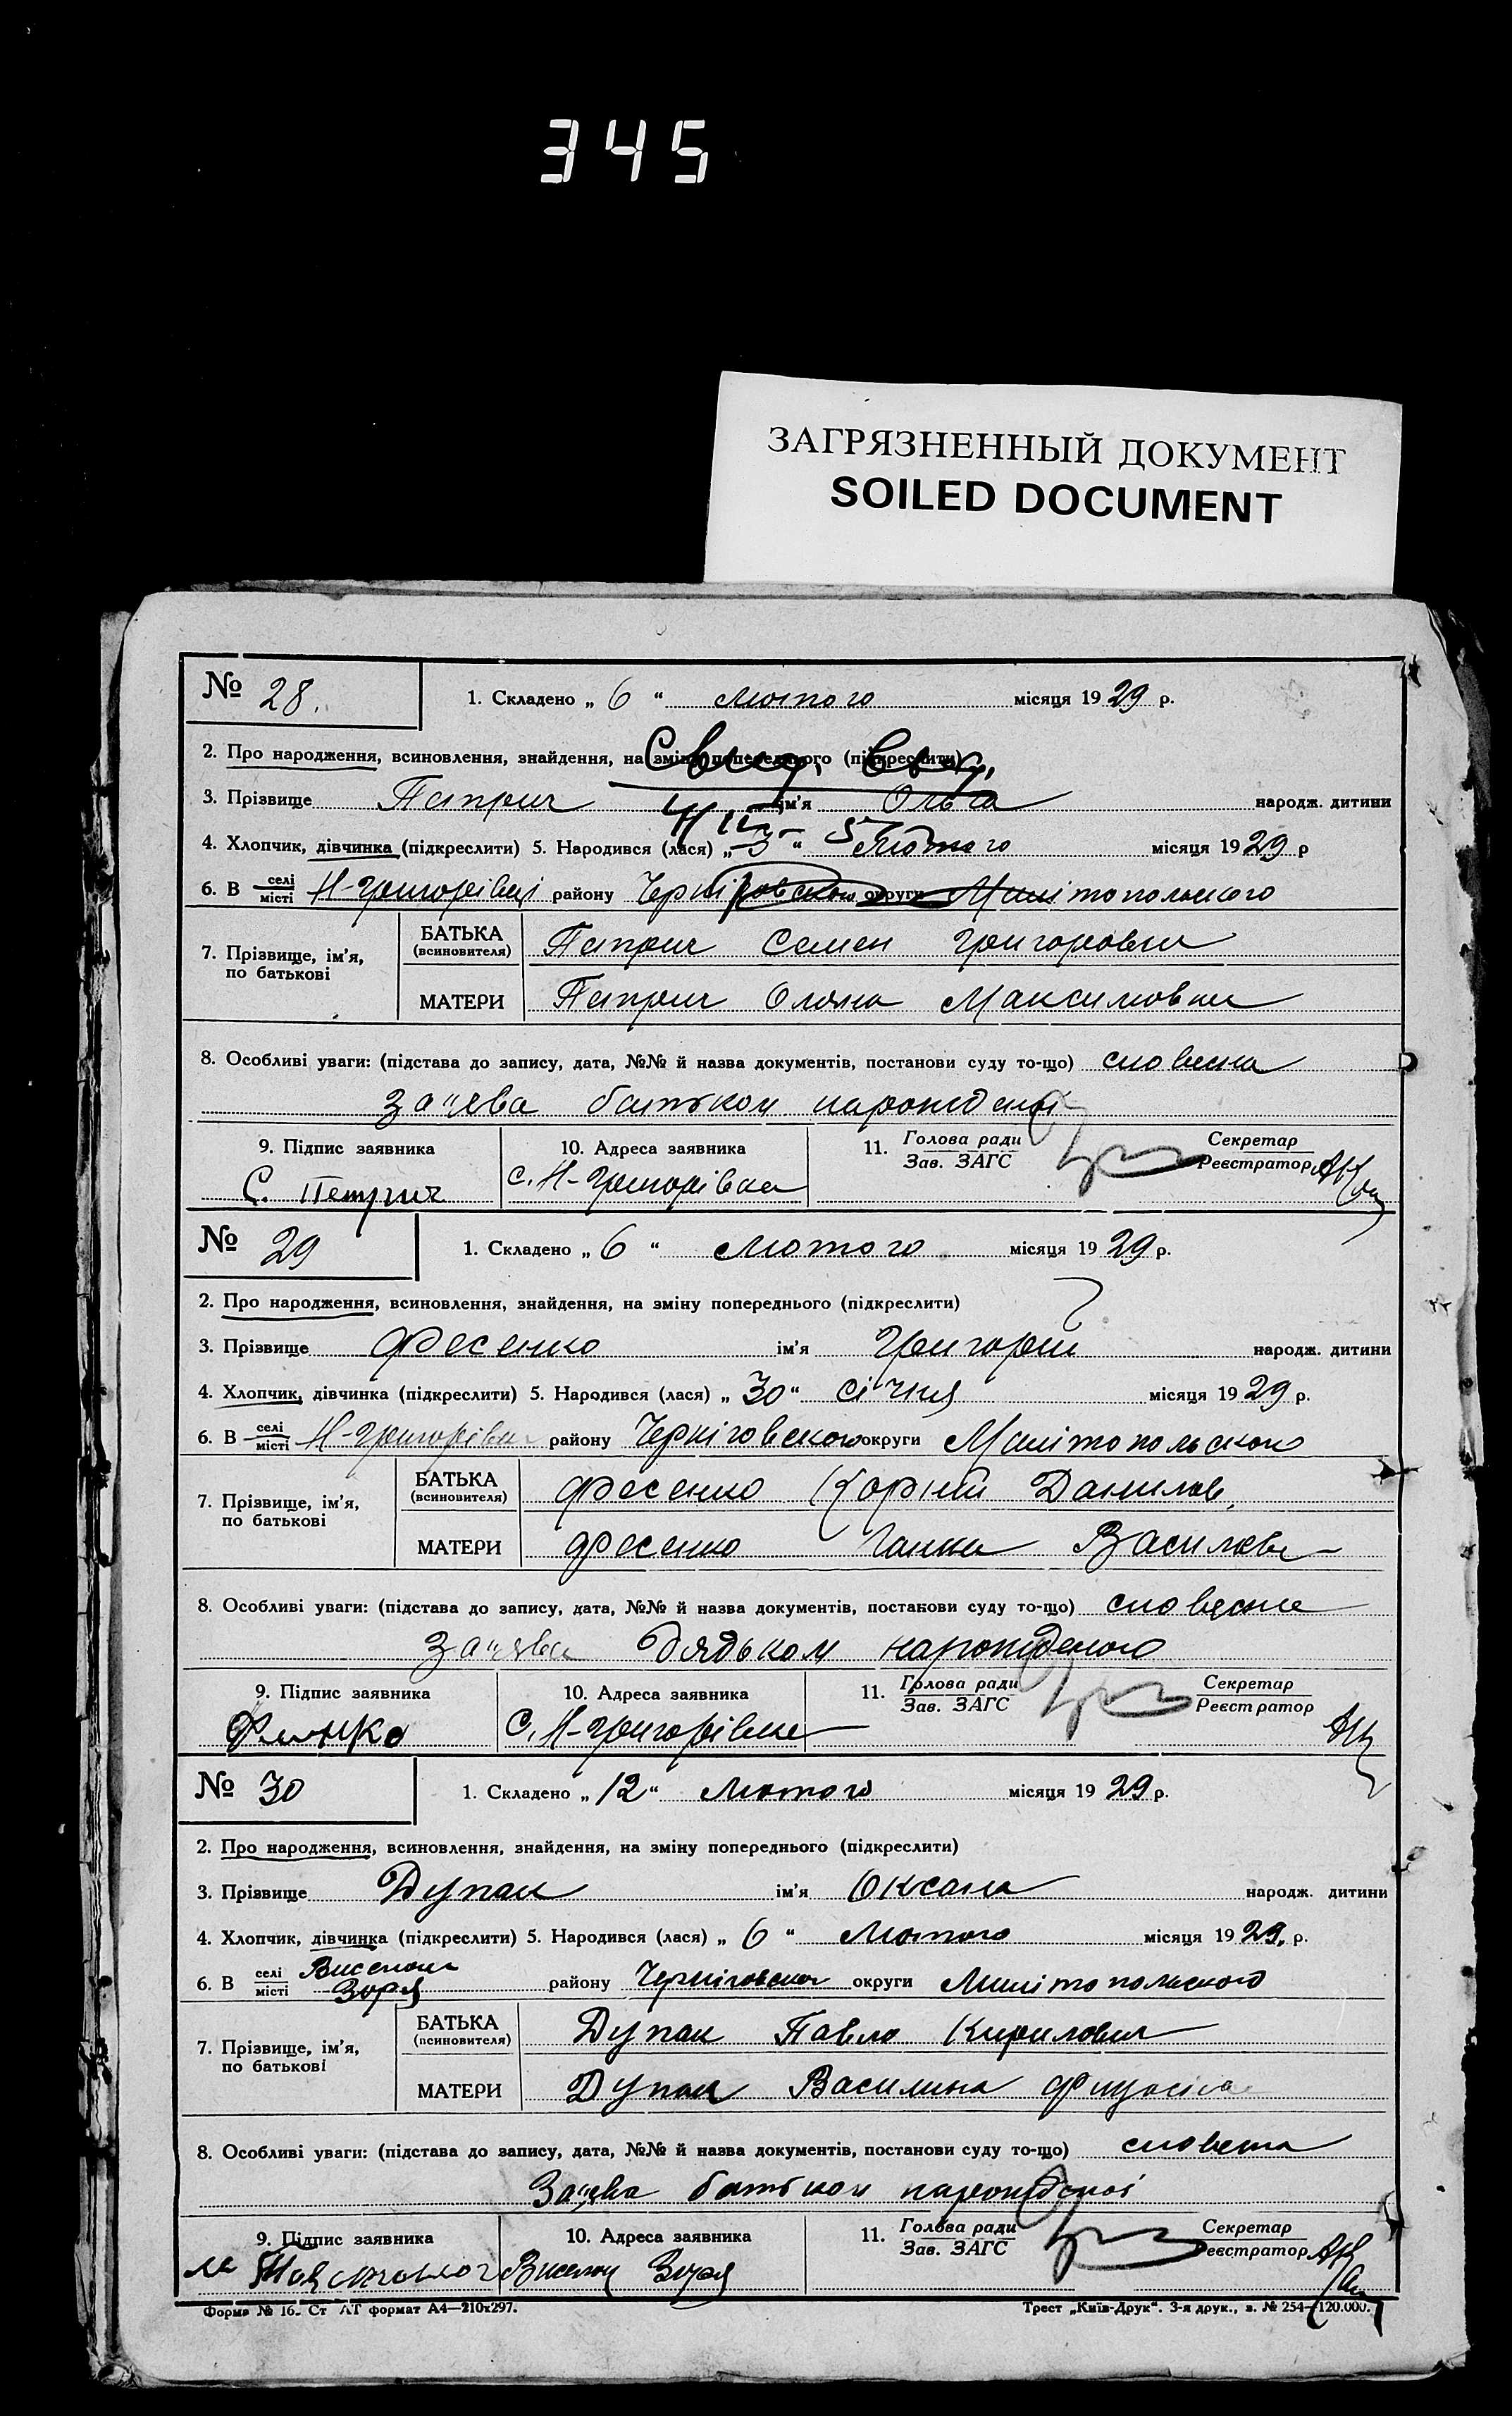 345
ЗАГРЯЗНЕННЫЙ ДОКУМЕНТ
SOILED DOCUMENT
№ 28. 1. Складено „ 6 “ лютого місяця 1929 р.
2. Про народження, всиновлення, знайдення, на зміну попереднього (підкреслити)
3. Прізвище Петрич ім'я Ольга народж. дитини
4. Хлопчик, дівчинка (підкреслити) 5. Народився (лася) „ 3 “ 5 Лютого місяця 1929 р
6. В селі/місті Н-Григорівці району Чернігівского округи Мелітопольского
7. Прізвище, ім'я, по батькові
БАТЬКА (всиновителя) Петрич Семен Григорович
МАТЕРИ Петрич Олена Максимовна
8. Особливі уваги: (підстава до запису, дата, №№ й назва документів, постанови суду то-що) словесна
заява батьком нарожденої
9. Підпис заявника 10. Адреса заявника 11. Голова ради Секретар
Зав. ЗАГС Реєстратор
С. Петрич с. Н-Григорівка
№ 29 1. Складено „ 6 “ лютого місяця 1929 р.
2. Про народження, всиновлення, знайдення, на зміну попереднього (підкреслити)
3. Прізвище Фесенко ім'я Григорій народж. дитини
4. Хлопчик, дівчинка (підкреслити) 5. Народився (лася) „ 30 “ січня місяця 1929 р.
6. В селі/місті Н-Григорівка району Черніговского округи Мелітопольского
7. Прізвище, ім'я, по батькові
БАТЬКА (всиновителя) Фесенко Корній Данилов.
МАТЕРИ Фесенко Ганна Василевн
8. Особливі уваги: (підстава до запису, дата, №№ й назва документів, постанови суду то-що) словесна
заява дядьком нарожденого
9. Підпис заявника 10. Адреса заявника 11. Голова ради Секретар
Зав. ЗАГС Реєстратор
С. Н-Григорівка
№ 30 1. Складено „ 12 “ лютого місяця 1929 р.
2. Про народження, всиновлення, знайдення, на зміну попереднього (підкреслити)
3. Прізвище Дупак ім'я Оксана народж. дитини
4. Хлопчик, дівчинка (підкреслити) 5. Народився (лася) „ 6 “ Лютого місяця 1929. р.
6. В селі/місті Виселок Зоря району Чернігівског округи Мелітопольского
7. Прізвище, ім'я, по батькові
БАТЬКА (всиновителя) Дупак Павло Кирилович
МАТЕРИ Дупак Василина
8. Особливі уваги: (підстава до запису, дата, №№ й назва документів, постанови суду то-що) словесна
Заява батьком нарожденої
9. Підпис заявника 10. Адреса заявника 11. Голова ради Секретар
Зав. ЗАГС Реєстратор
Виселок Зоря
Форма № 16. Ст АТ формат А4—210х297. Трест „Київ-Друк“. 3-я друк., з. № 254—120.000.